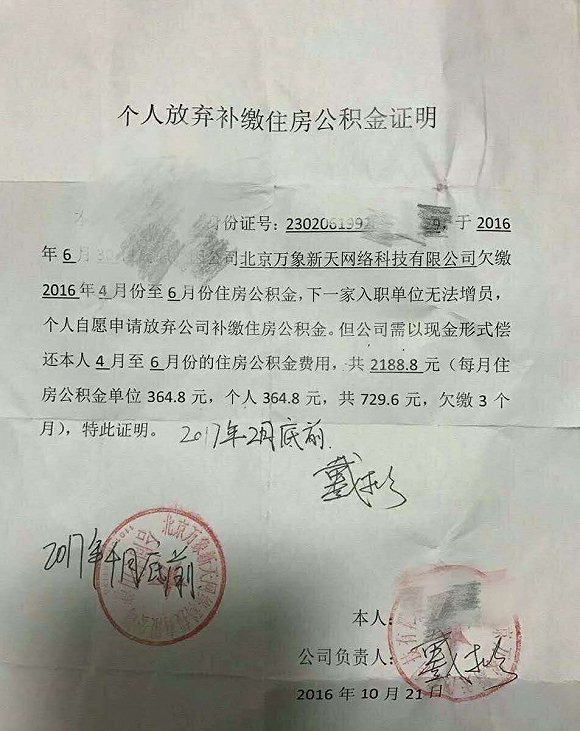 个人放弃补缴住房公积金证明
身份证号：2302061992
，于 2016
年 6 月 30
公司北京万象新天网络科技有限公司欠缴
2016 年 4 月份至 6 月份住房公积金，下一家入职单位无法增员，
个人自愿申请放弃公司补缴住房公积金。但公司需以现金形式偿
还本人 4 月至 6 月份的住房公积金费用，共 2188.8 元（每月住
房公积金单位 364.8 元，个人 364.8 元，共 729.6 元，欠缴 3 个
月），特此证明。 2017年2月底前
2017年 月底前
北京万象新天网络科技有限公司
本人：
公司负责人：
2016 年 10 月 21 日